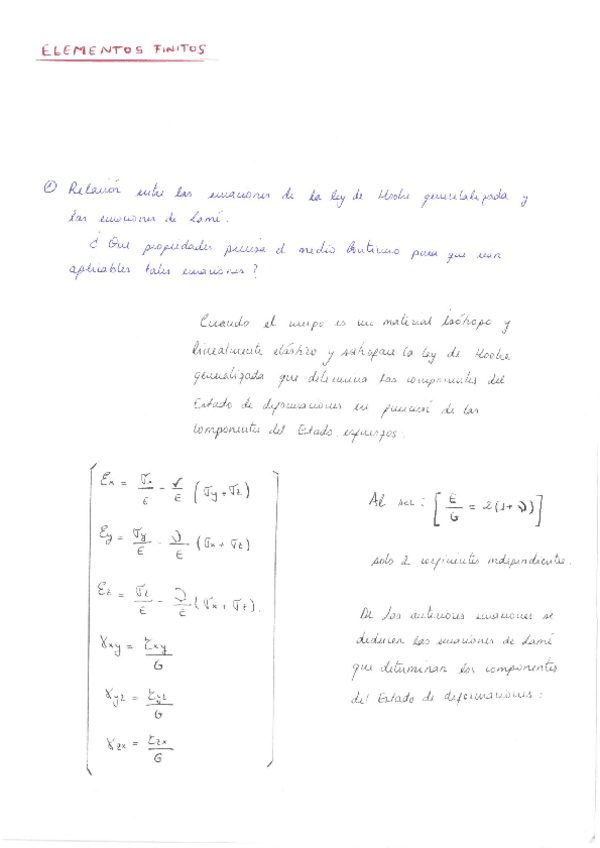 ELEMENTOS FINITOS
① Relación entre las ecuaciones de la ley de Hooke generalizada y
las ecuaciones de Lamé.
¿ Que propiedades precisa el medio continuo para que sean
aplicables tales ecuaciones ?
Cuando el cuerpo es un material isótropo y
linealmente elástico y satisface la ley de Hooke
generalizada que determina las componentes del
Estado de deformaciones en función de las
componentes del Estado esfuerzos.
εx = σx/E - ν/E (σy + σz)
εy = σy/E - ν/E (σx + σz)
εz = σz/E - ν/E (σx + σz).
γxy = τxy/G
γyz = τyz/G
γzx = τzx/G
Al ser : [E/G = 2(1+ν)]
solo 2 coeficientes independientes.
De las anteriores ecuaciones se
deducen las ecuaciones de Lamé
que determinan los componentes
del Estado de deformaciones :